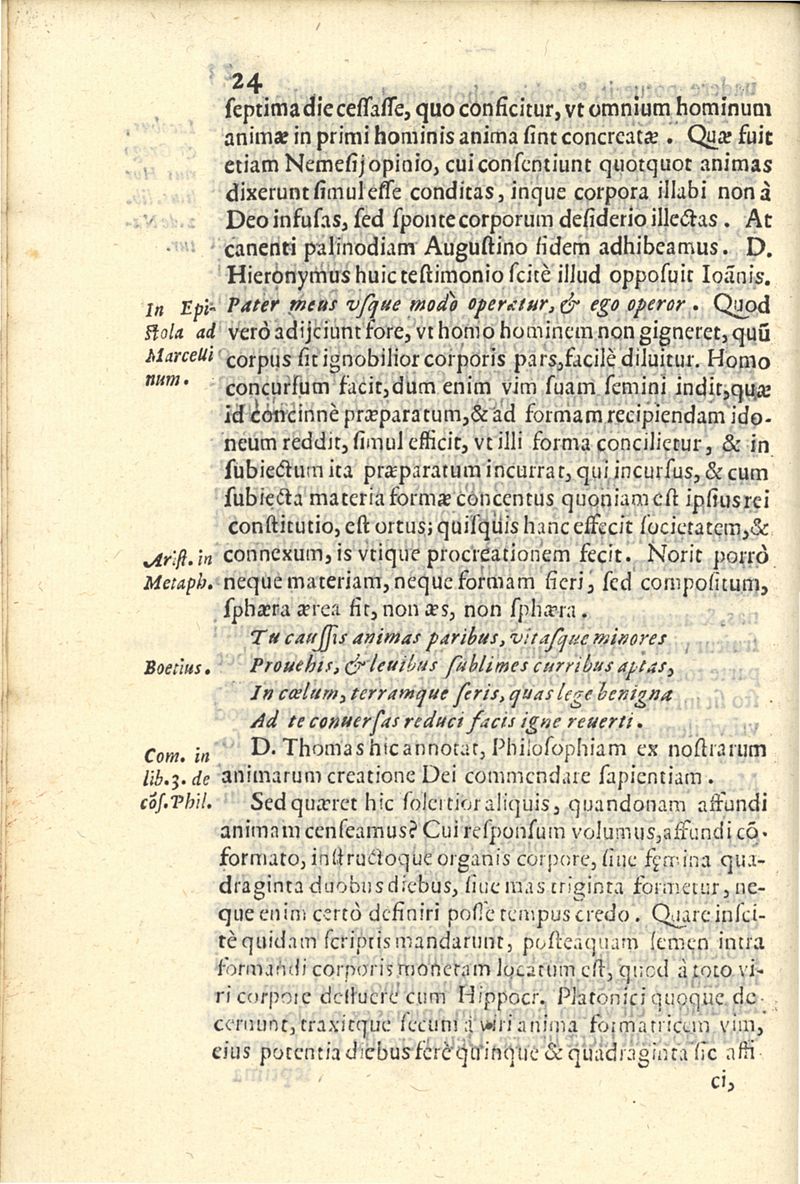 24
ſeptima die ceſſaſſe, quo conficitur, vt omnium hominum
animæ in primi hominis anima ſint concreatæ. Quæ fuit
etiam Nemeſij opinio, cui conſentiunt quotquot animas
dixerunt ſimul eſſe conditas, inque corpora illabi non à
Deo infuſas, ſed ſponte corporum deſiderio illectas. At
canenti palinodiam Auguſtino fidem adhibeamus. D.
Hieronymus huic teſtimonio ſcitè illud oppoſuit Ioānis.
In Epi-
ſtola ad
Marcelli
num.
Pater meus vſque modò operatur, & ego operor. Quod
verò adijciunt fore, vt homo hominem non gigneret, quū
corpus ſit ignobilior corporis pars, facilè diluitur. Homo
concurſum facit, dum enim vim ſuam ſemini indit, quæ
id concinnè præparatum, & ad formam recipiendam ido-
neum reddit, ſimul efficit, vt illi forma concilietur, & in
ſubiectum ita præparatum incurrat, qui incurſus, & cum
ſubiecta materia formæ concentus quoniam eſt ipſius rei
conſtitutio, eſt ortus; quiſquis hanc effecit ſocietatem, &
Ariſt. in
Metaph.
connexum, is vtique procreationem fecit. Norit porrò
neque materiam, neque formam fieri, ſed compoſitum,
ſphæra ærea fit, non æs, non ſphæra.
Tu cauſſis animas paribus, vitaſque minores
Boetius.
Prouehis, & leuibus ſublimes curribus aptas,
In cœlum, terramque ſeris, quas lege benigna
Ad te conuerſas reduci facis igne reuerti.
Com. in
lib. 3. de
cōſ. Phil.
D. Thomas hic annotat, Philoſophiam ex noſtrarum
animarum creatione Dei commendare ſapientiam.
Sed quæret hic ſolertior aliquis, quandonam affundi
animam cenſeamus? Cui reſponſum volumus, affundi cō-
formato, inſtructoque organis corpore, ſiue fęmina qua-
draginta duobus diebus, ſiue mas triginta formetur, ne-
que enim certò definiri poſſe tempus credo. Quare inſci-
tè quidam ſcriptis mandarunt, poſteaquam ſemen intra
formandi corporis monetam locatum eſt, quod à toto vi-
ri corpore defluere cum Hippocr. Platonici quoque de-
cernunt, traxitque ſecum à viri anima formatricem vim,
eius potentia diebus ferè quinque & quadraginta ſic affi
ci,